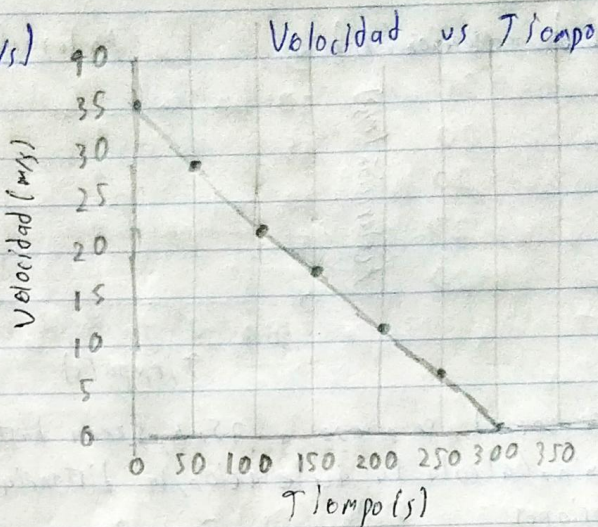 /s)
Velocidad vs Tiempo
Velocidad (m/s)
40
35
30
25
20
15
10
5
0
0 50 100 150 200 250 300 350
Tiempo (s)